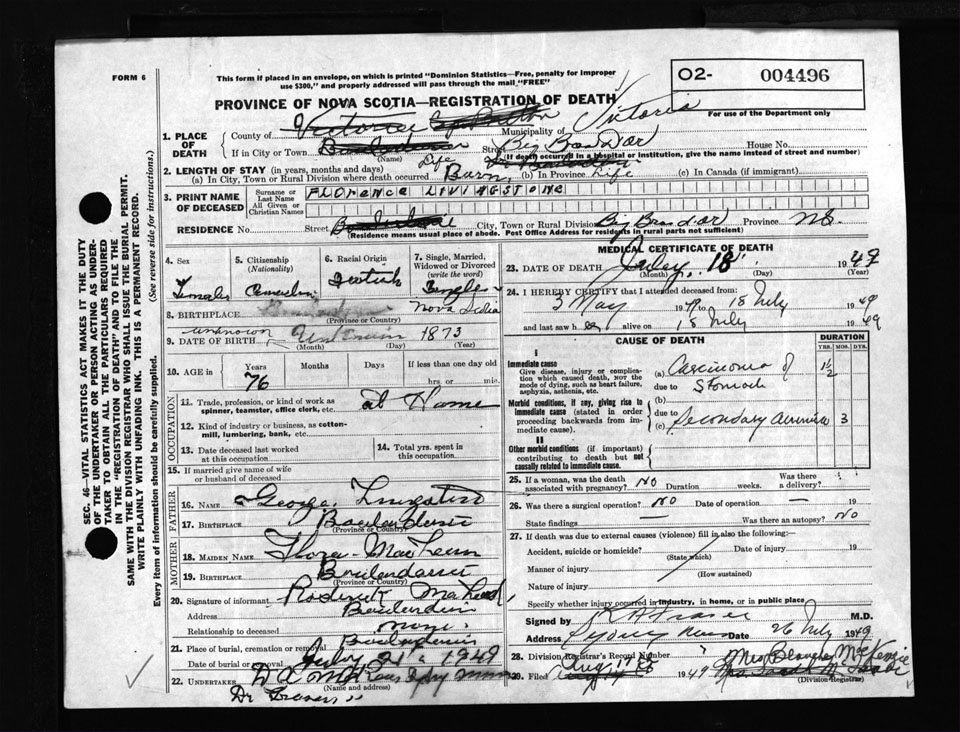 FORM 6
This form if placed in an envelope, on which is printed "Dominion Statistics—Free, penalty for improper
use $300," and properly addressed will pass through the mail "FREE"
O2- 004496
For use of the Department only
PROVINCE OF NOVA SCOTIA—REGISTRATION OF DEATH
1. PLACE OF DEATH
County of Victoria Cape Breton Municipality of Victoria
If in City or Town (Name) Street Big Bras D'or House No.
(If death occurred in a hospital or institution, give the name instead of street and number)
2. LENGTH OF STAY (in years, months and days) Life
(a) In City, Town or Rural Division where death occurred Born (b) In Province Life (c) In Canada (if immigrant)
3. PRINT NAME OF DECEASED
Surname or Last Name
All Given or Christian Names
FLORENCE LIVINGSTONE
RESIDENCE No. Street City, Town or Rural Division Big Bras d'or Province N.S.
(Residence means usual place of abode. Post Office Address for residents in rural parts not sufficient)
4. Sex Female
5. Citizenship (Nationality) Canadian
6. Racial Origin Scotish
7. Single, Married, Widowed or Divorced (write the word) Single
8. BIRTHPLACE Nova Scotia
(Province or Country)
9. DATE OF BIRTH unknown 1873
(Month) (Day) (Year)
10. AGE in Years 76 Months Days If less than one day old
hrs. or min.
OCCUPATION
11. Trade, profession, or kind of work as spinner, teamster, office clerk, etc. at Home
12. Kind of industry or business, as cotton-mill, lumbering, bank, etc.
13. Date deceased last worked at this occupation
14. Total yrs. spent in this occupation
15. If married give name of wife or husband of deceased
FATHER
16. NAME George
17. BIRTHPLACE
(Province or Country)
MOTHER
18. MAIDEN NAME
19. BIRTHPLACE
(Province or Country)
20. Signature of informant Roderick
Address
Relationship to deceased none
21. Place of burial, cremation or removal
Date of burial or removal July 21, 1949
22. UNDERTAKER
(Name and address)
MEDICAL CERTIFICATE OF DEATH
23. DATE OF DEATH July 18 1949
(Month) (Day) (Year)
24. I HEREBY CERTIFY that I attended deceased from:
3 May 1949 18 July 1949
and last saw her alive on 18 July 1949
CAUSE OF DEATH
DURATION
YRS. MOS. DYS.
I
Immediate cause
Give disease, injury or complication which caused death, NOT the mode of dying, such as heart failure, asphyxia, asthenia, etc.
(a) Carcinoma of 1½
due to Stomach
Morbid conditions, if any, giving rise to immediate cause (stated in order proceeding backwards from immediate cause).
(b)
due to
(c) Secondary anemia 3
II
Other morbid conditions (if important) contributing to death but not causally related to immediate cause.
25. If a woman, was the death associated with pregnancy? NO Duration weeks. Was there a delivery?
26. Was there a surgical operation? NO Date of operation — 19
State findings — Was there an autopsy? NO
27. If death was due to external causes (violence) fill in also the following:—
Accident, suicide or homicide? Date of injury 19
(State which)
Manner of injury
(How sustained)
Nature of injury
Specify whether injury occurred in industry, in home, or in public place
Signed by M.D.
Address Sydney Mines Date 26 July 1949
28. Division Registrar's Record Number
29. Filed 1949 Mrs Blanche McKenzie
(Division Registrar)
SEC. 46—VITAL STATISTICS ACT MAKES IT THE DUTY
OF THE UNDERTAKER OR PERSON ACTING AS UNDERTAKER TO OBTAIN ALL THE PARTICULARS REQUIRED
IN THE "REGISTRATION OF DEATH" AND TO FILE THE
SAME WITH THE DIVISION REGISTRAR WHO SHALL ISSUE THE BURIAL PERMIT.
WRITE PLAINLY WITH UNFADING INK. THIS IS A PERMANENT RECORD.
Every item of information should be carefully supplied. (See reverse side for instructions.)